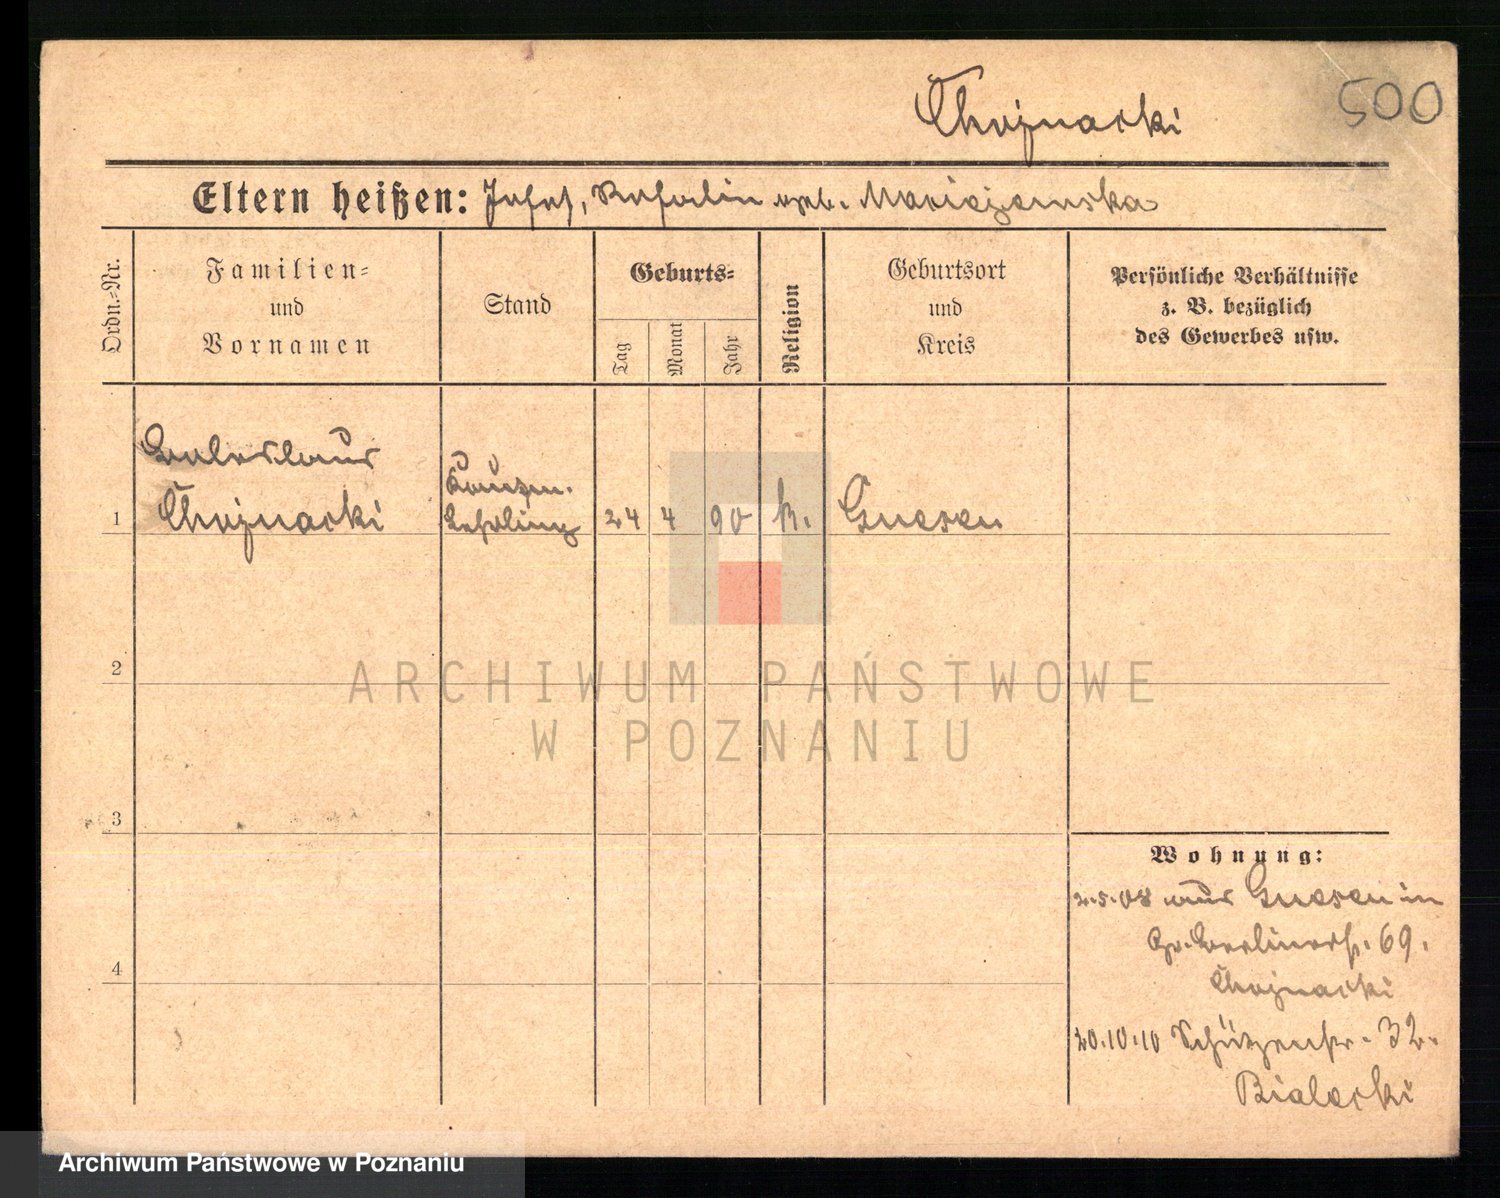 Chojnacki
500
Eltern heißen: Josef, Kasalin geb. Marciejewska
Ordn.=Nr.
Familien=
und
Vornamen
Stand
Geburts=
Tag
Monat
Jahr
Religion
Geburtsort
und
Kreis
Persönliche Verhältnisse
z. B. bezüglich
des Gewerbes usw.
Boleslaus
1 Chojnacki Lehrling 24 4 90 k. Gnesen
2
ARCHIWUM PAŃSTWOWE
W POZNANIU
3
Wohnung:
2.5.08 aus Gnesen in
Gr. Berlinerstr. 69.
Chojnacki
4
20.10.10 Schützenstr. 32.
Bialecki
Archiwum Państwowe w Poznaniu